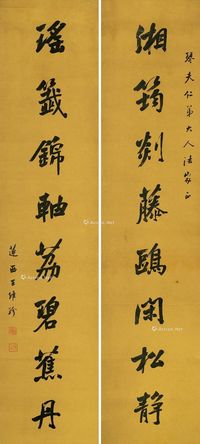 琴夫仁弟大人法家正
湘筠剡藤鷗閑松静
瑤籤錦軸荔碧蕉丹
蓮西王維珍